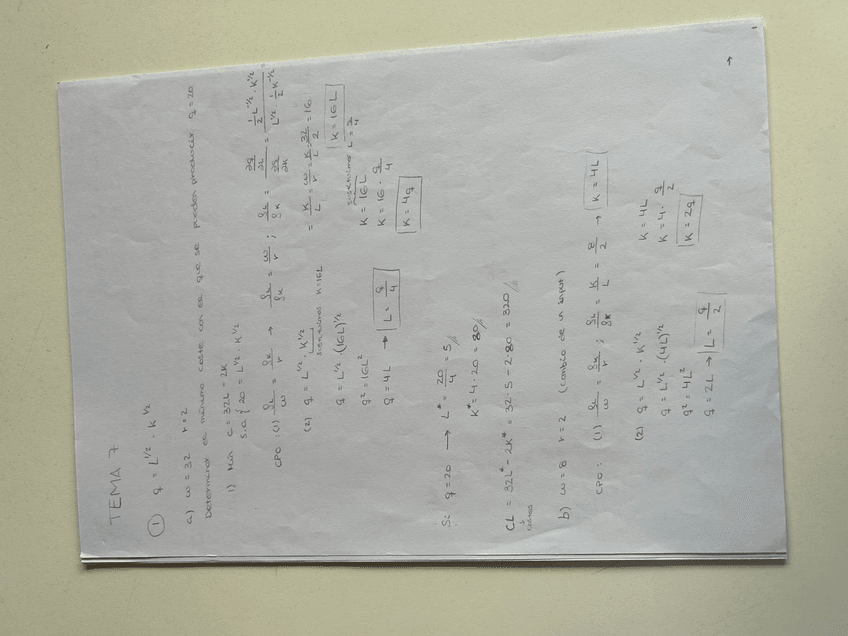 TEMA 7
① q = L^1/2 · K^1/2
a) w = 32 r = 2
Determinar el mínimo coste con el que se puedan producir q = 20
1) Min c = 32L - 2K
s.a { 20 = L^1/2 · K^1/2
CPO: (1) qL/w = qK/r → qL/qK = w/r ; qL/qK = (∂q/∂L)/(∂q/∂K) = (1/2 L^-1/2 · K^1/2)/(L^1/2 · 1/2 K^-1/2) =
= K/L = w/r = K/L = 32/2 = 16
K = 16L
(2) q = L^1/2 · K^1/2
sustituimos K = 16L
q = L^1/2 · (16L)^1/2
q² = 16L²
q = 4L → L = q/4
sustituimos L = q/4
K = 16L
K = 16 · q/4
K = 4q
Si q = 20 → L* = 20/4 = 5
K* = 4 · 20 = 80
CL = 32L* - 2K* = 32 · 5 - 2·80 = 320
↓
costes
b) w = 8 r = 2 (cambio de un input)
CPO: (1) qL/w = qK/r ; qL/qK = K/L = 8/2 → K = 4L
(2) q = L^1/2 · K^1/2
q = L^1/2 · (4L)^1/2
q² = 4L²
q = 2L → L = q/2
K = 4L
K = 4 · q/2
K = 2q